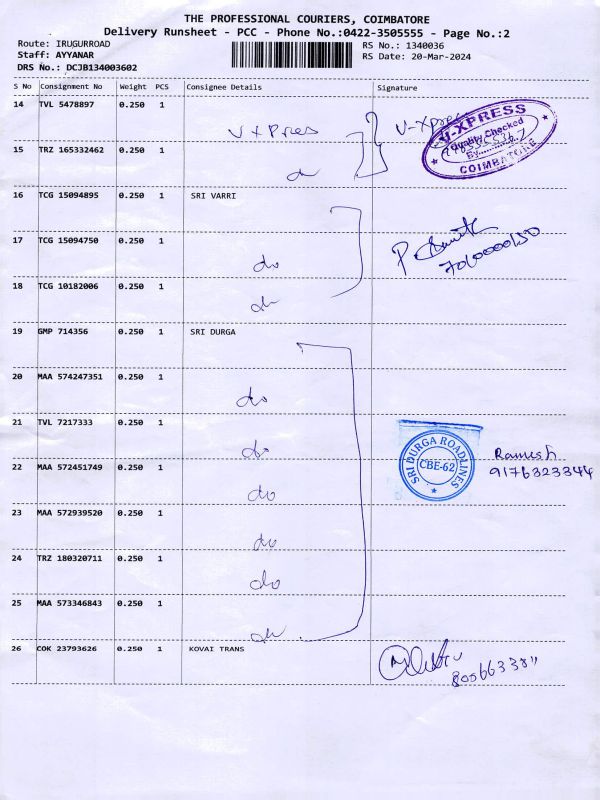 THE PROFESSIONAL COURIERS, COIMBATORE
Delivery Runsheet - PCC - Phone No.:0422-3505555 - Page No.:2
Route: IRUGURROAD
Staff: AYYANAR
DRS No.: DCJB134003602
RS No.: 1340036
RS Date: 20-Mar-2024
S No Consignment No Weight PCS Consignee Details Signature
14 TVL 5478897 0.250 1 V XPress V-Xpress
V-XPRESS
Quality Checked
By
COIMBATORE
15 TRZ 165332462 0.250 1 do
16 TCG 15094895 0.250 1 SRI VARRI
17 TCG 15094750 0.250 1 do
18 TCG 10182006 0.250 1 do
19 GMP 714356 0.250 1 SRI DURGA
20 MAA 574247351 0.250 1 do
21 TVL 7217333 0.250 1 do
22 MAA 572451749 0.250 1 do
SRI DURGA ROADLINES
CBE-62
Ramesh
9176323344
23 MAA 572939520 0.250 1 do
24 TRZ 180320711 0.250 1 do
25 MAA 573346843 0.250 1 do
26 COK 23793626 0.250 1 KOVAI TRANS